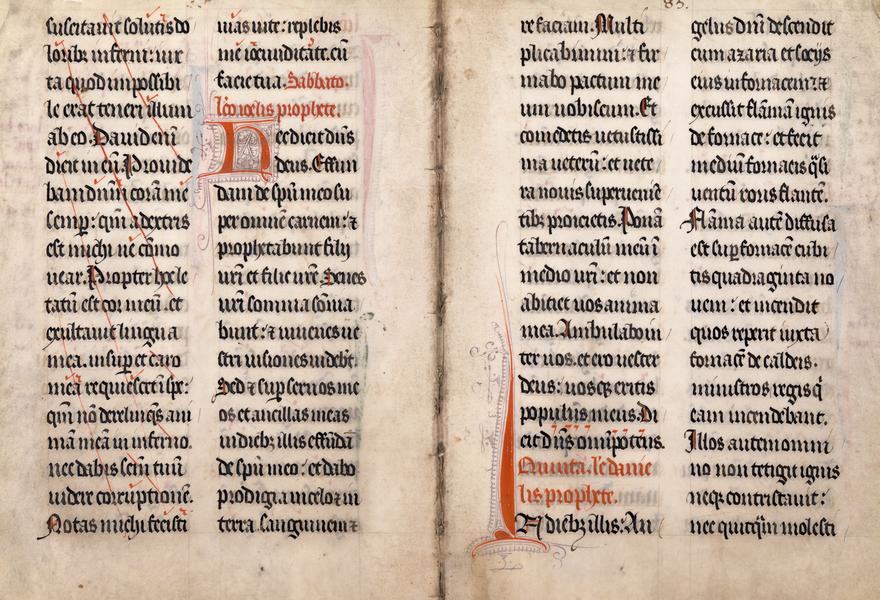 suscitauit solutis do
loribȝ inferni: iux
ta quod impossibi
le erat teneri illum
ab eo. Dauid eni̅
dicit in eu̅. Prouide
bam dn̅m cora̅ me
semp̲: qm̅ a dextris
est michi ne co̅mo
uear. Propter hoc le
tatu̅ est cor meu̅. et
exultauit lingua
mea. insup̲ et caro
mea requiescet i̅ spe:
qm̅ no̅ derelinq̅s ani
ma̅ mea̅ in inferno.
nec dabis sc̅m tuu̅
uidere corruptione̅.
Notas michi fecisti
uias uite: replebis
me iocunditate. cu̅
facie tua. Sabbato.
lc̅o ioelis prophete.
Hec dicit dn̅s
deus. Effun
dam de spu̅ meo su
per omne̅ carnem: ⁊
prophetabunt filij
ur̅i et filie ur̅e. Senes
ur̅i somnia so̅nia
bunt: ⁊ iuuenes ue
stri uisiones uideb̅t.
Sed ⁊ sup̲ seruos me
os et ancillas meas
in diebȝ illis effu̅da̅
de spu̅ meo: et dabo
prodigia in celo ⁊ in
terra. sanguinem ⁊
83.
re faciam. Multi
plicabimini: ⁊ fir
mabo pactum me
um uobiscum. Et
comedetis uetustissi
ma ueteru̅: et uete
ra nouis superuenie̅
tibȝ proicietis. Pona̅
tabernaculu̅ meu̅ i̅
medio ur̅i: et non
abiciet uos anima
mea. Ambulabo in
ter uos. et ero uester
deus: uosqȝ eritis
populus meus. Di
cit dn̅s omnipote̅s.
Quinta. lc̅ danie
lis prophete.
IN diebȝ illis: An
gelus dn̅i descendit
cum azaria et socijs
eius in fornacem: ⁊
excussit fla̅ma̅ ignis
de fornace: et fecit
mediu̅ fornacis q̅si
uentu̅ roris flante̅.
Fla̅ma aute̅ diffusa
est sup̲ fornace̅ cubi
tis quadraginta no
uem: et incendit
quos reperit iuxta
fornace̅ de caldeis.
ministros regis q̅
eam incendebant.
Illos autem omni
no non tetigit ignis
neqȝ contristauit:
nec quicq̅m molesti